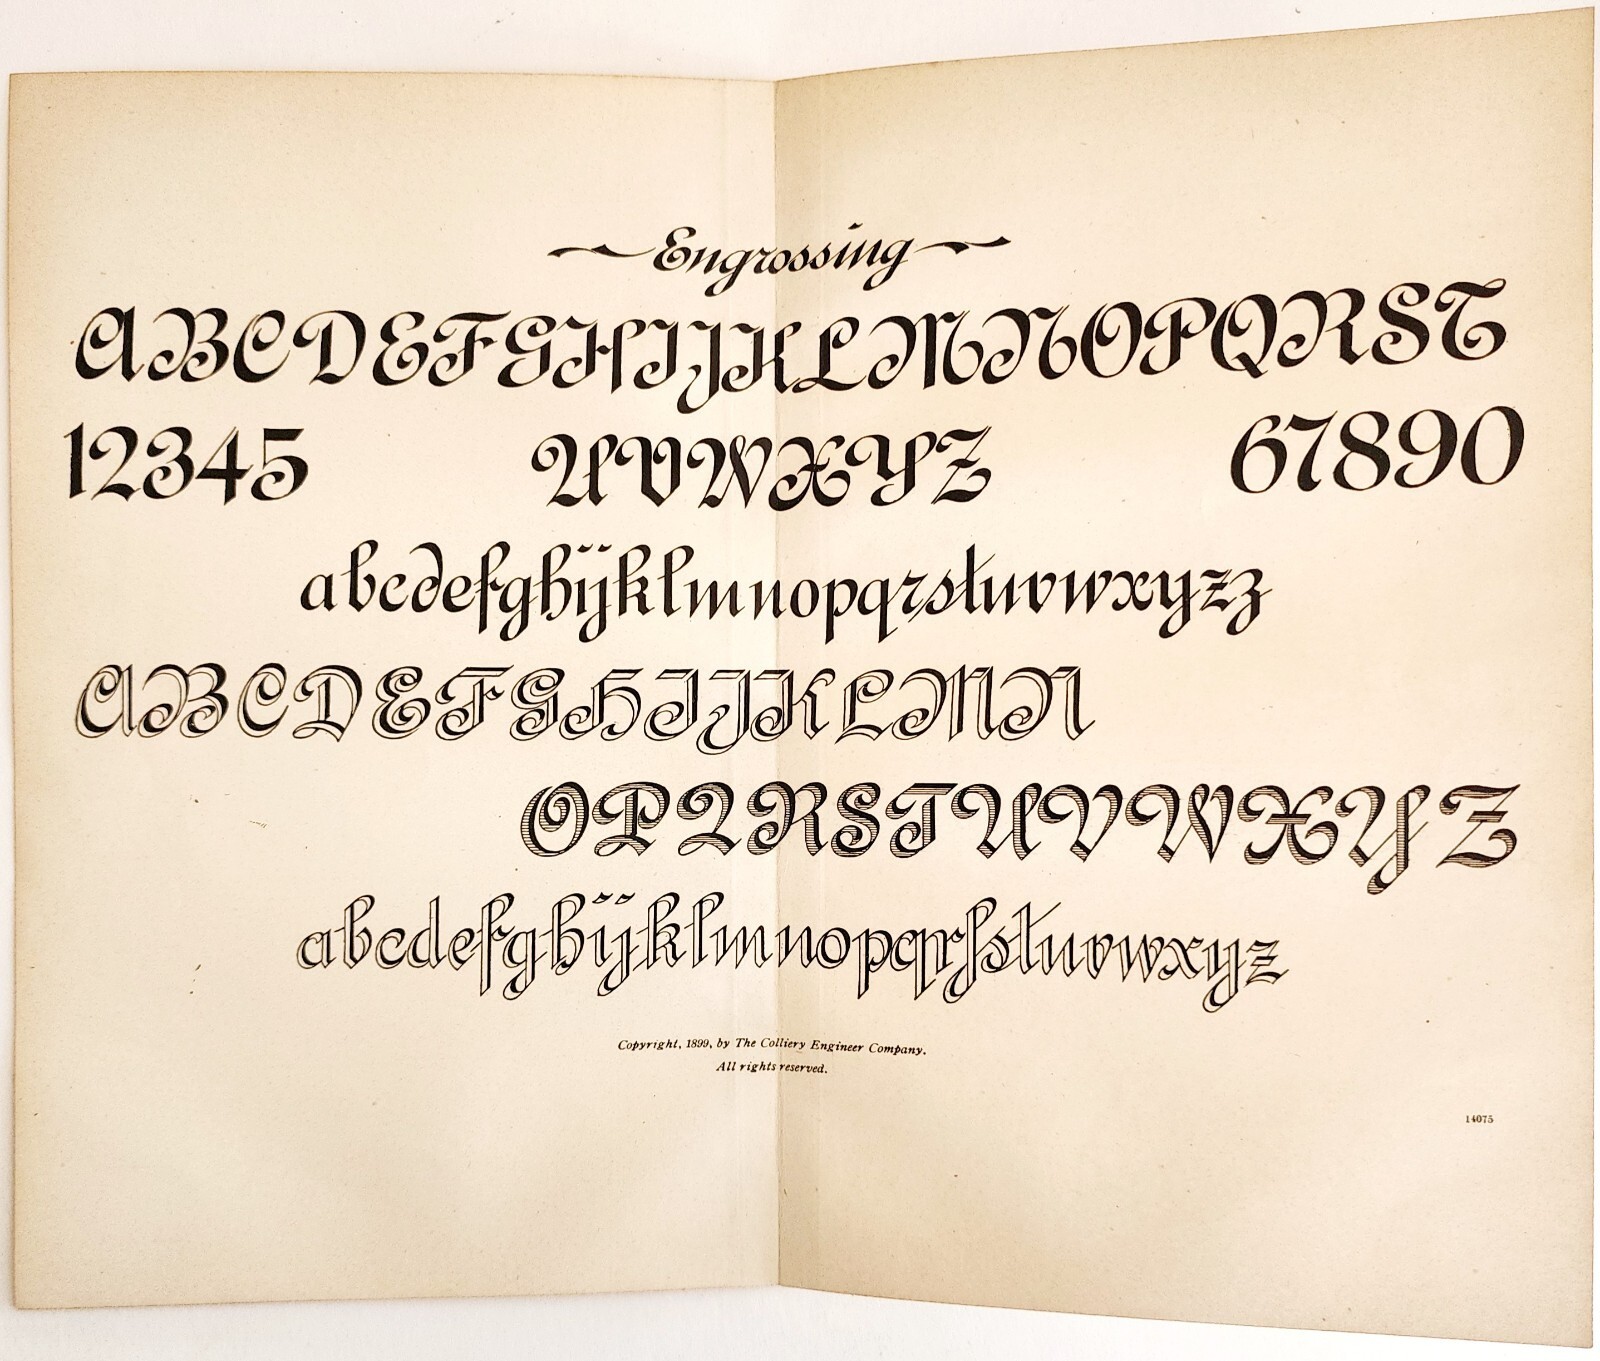 Engrossing
ABCDEFGHIJKLMNOPQRST
12345 UVWXYZ 67890
abcdefghijklmnopqrstuvwxyzz
ABCDEFGHIJKLMN
OPQRSTUVWXYZ
abcdefghijklmnopqrſstuvwxyz
Copyright, 1899, by The Colliery Engineer Company.
All rights reserved.
14075